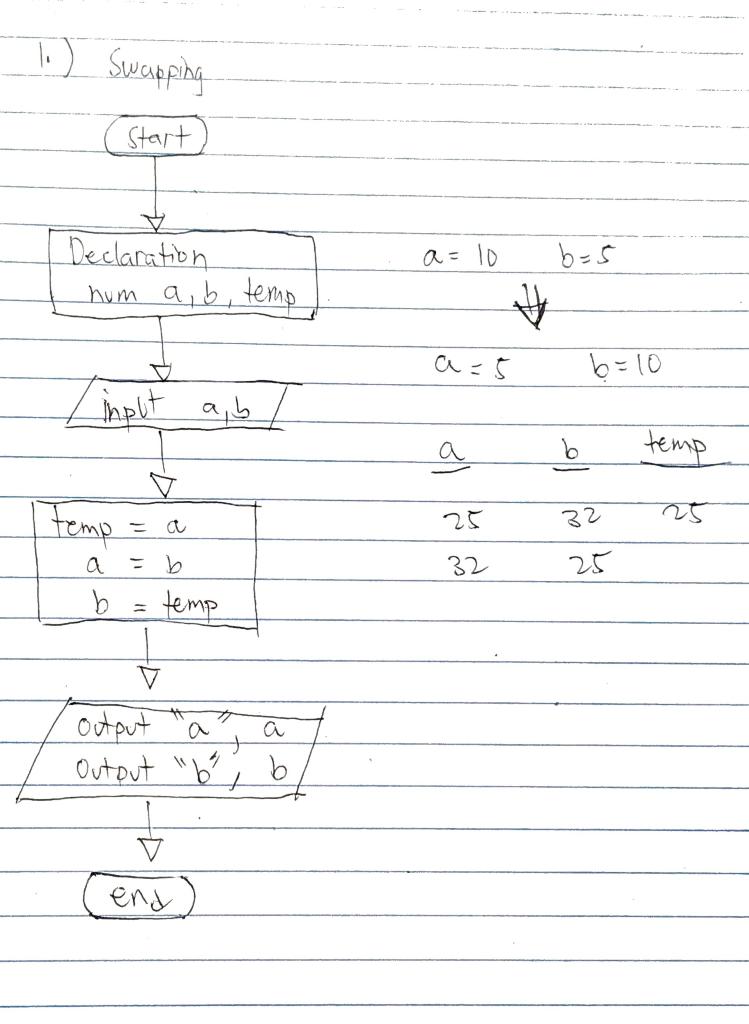 1.) Swapping
Start
Declaration
num a, b, temp
input a, b
temp = a
a = b
b = temp
Output "a", a
Output "b", b
end
a = 10 b = 5
a = 5 b = 10
a b temp
25 32 25
32 25